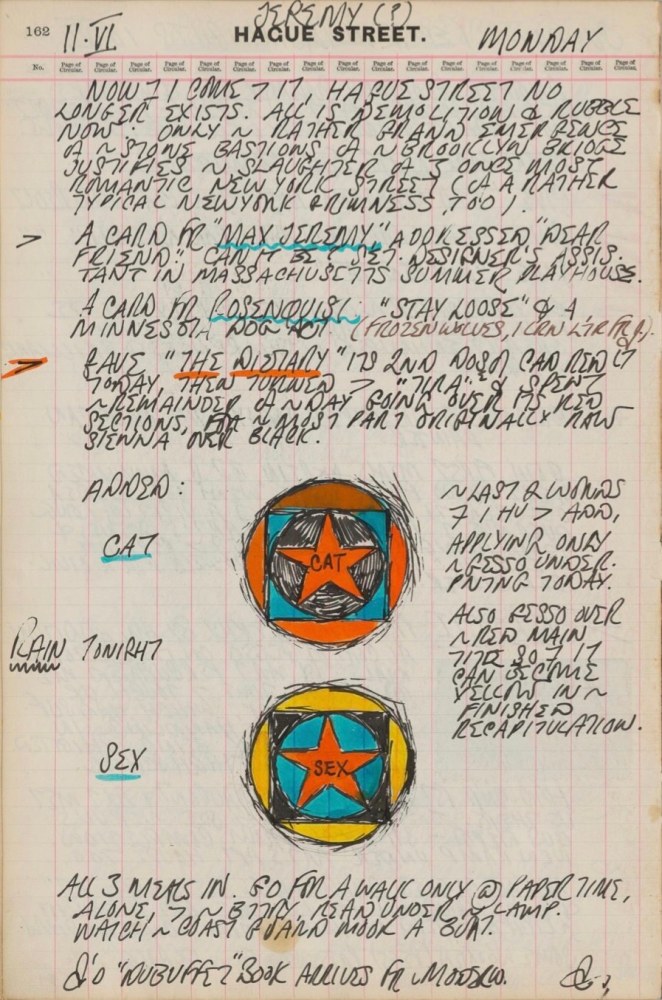 JEREMY (?)
162 11·VI HAGUE STREET. MONDAY
No. Page of Circular. Page of Circular. Page of Circular. Page of Circular. Page of Circular. Page of Circular. Page of Circular. Page of Circular. Page of Circular. Page of Circular. Page of Circular. Page of Circular. Page of Circular. Page of Circular. Page of Circular. Page of Circular.
NOW I COME 7 IT, HAGUE STREET NO
LONGER EXISTS. ALL IS DEMOLITION & RUBBLE
NOW: ONLY ~ RATHER GRAND EMERGENCE
~ STONE BASTIONS ~ BROOKLYN BRIDGE
JUSTIFIES ~ SLAUGHTER ONCE MOST
ROMANTIC NEW YORK STREET (A RATHER
TYPICAL NEW YORK GRIMNESS, TOO).
> A CARD FR "MAX JEREMY," ADDRESSED "DEAR
FRIEND." CAN IT BE? SET DESIGNER'S ASSIS-
TANT IN MASSACHUSETTS SUMMER PLAYHOUSE.
A CARD FR ROSENQUIST: "STAY LOOSE" & A
MINNESOTA DOG ACT. (FROZEN WOLVES,
> GAVE "THE DIETARY" ITS 2ND DOSE CAD RED LT
TODAY, THEN TURNED > "TIRA" & SPENT
~ REMAINDER ~ DAY GOING OVER ITS RED
SECTIONS, FOR ~ MOST PART ORIGINALLY RAW
SIENNA OVER BLACK.
ADDED:
CAT
CAT
~ LAST 2 WORDS
7 I HV > ADD,
APPLYING ONLY
~ GESSO UNDER-
PNTNG TODAY.
ALSO GESSO OVER
~ RED MAIN
TITLE SO 7 IT
CAN BECOME
YELLOW IN ~
FINISHED
RECAPITULATION.
RAIN TONIGHT
SEX
SEX
ALL 3 MEALS IN. GO FOR A WALK ONLY @ PAPER TIME,
ALONE, > ~ BTTRY, READ UNDER ~ LAMP.
WATCH ~ COAST GUARD MOOR A BOAT.
"DUBUFFET" BOOK ARRIVES FR ~ MODERN.